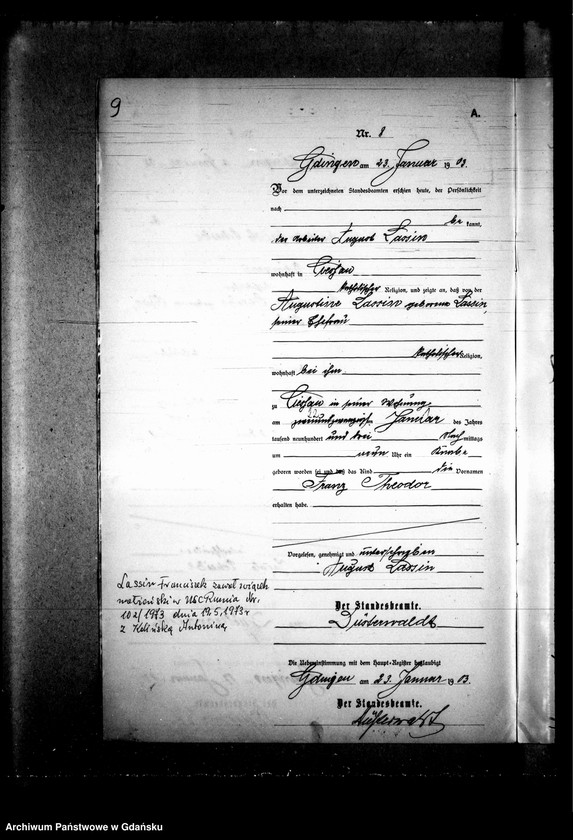 9
A.
Nr. 8
Gdingen am 23. Januar 1903.
Vor dem unterzeichneten Standesbeamten erschien heute, der Persönlichkeit
nach
be kannt,
der Arbeiter August Lassin
wohnhaft in Ciessau
katholischer Religion, und zeigte an, daß von der
Augustine Lassin geborene Lassin,
seiner Ehefrau
katholischer Religion,
wohnhaft bei ihm
zu Ciessau in seiner Wohnung
am Januar des Jahres
tausend neunhundert und drei Nach mittags
um neun Uhr ein Knabe
geboren worden sei und daß das Kind die Vornamen
Franz Theodor
erhalten habe.
Vorgelesen, genehmigt und unterschrieben
August Lassin
Der Standesbeamte.
Düsterwaldt
Die Uebereinstimmung mit dem Haupt-Register beglaubigt
Gdingen am 23. Januar 1903.
Der Standesbeamte.
Düsterwaldt
Lassin Franciszek zawarł związek
małżeński w USC Rumia Nr.
102/1973 dnia 19.5.1973 r
z Kilińską Antoniną
Archiwum Państwowe w Gdańsku